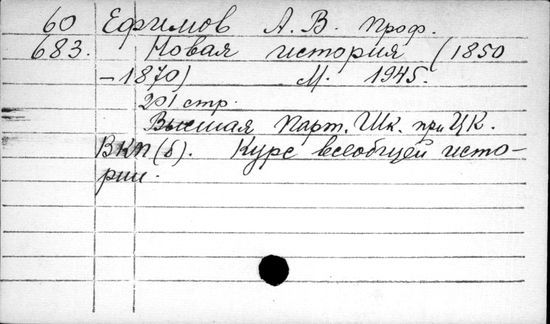 60 Ефимов А. В. проф.
683. Новая история (1850
-1870) М. 1945.
201 стр.
Высшая Парт. Шк. при ЦК.
ВКП(б). Курс всеобщей исто-
рии.